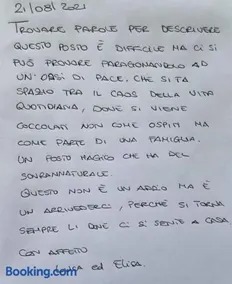 21/08/2021
TROVARE PAROLE PER DESCRIVERE
QUESTO POSTO È DIFFICILE MA CI SI
PUÒ PROVARE PARAGONANDOLO AD
UN'OASI DI PACE, CHE SI FA
SPAZIO TRA IL CAOS DELLA VITA
QUOTIDIANA, DOVE SI VIENE
COCCOLATI NON COME OSPITI MA
COME PARTE DI UNA FAMIGLIA.
UN POSTO MAGICO CHE HA DEL
SOVRANNATURALE.
QUESTO NON È UN ADDIO MA È
UN ARRIVEDERCI, PERCHÉ SI TORNA
SEMPRE LÌ DOVE CI SI SENTE A CASA.
CON AFFETTO
ED ELISA.
Booking.com